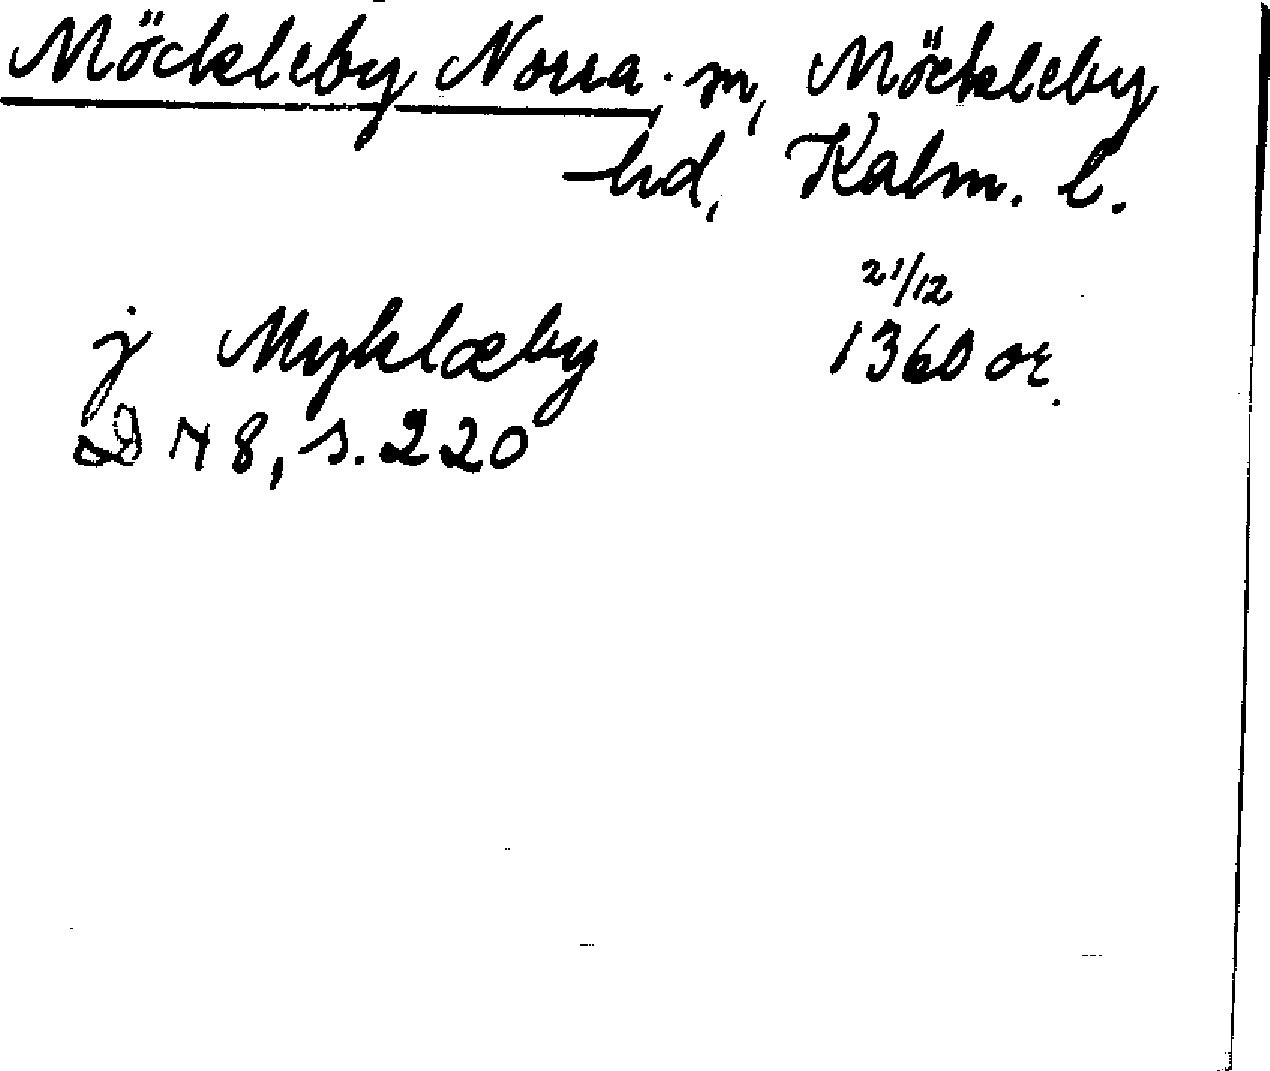 Möckleby Norra sn, Möckleby
hd, Kalm. l.
21/12
j Myklæby 1360 or.
D 48, s. 220